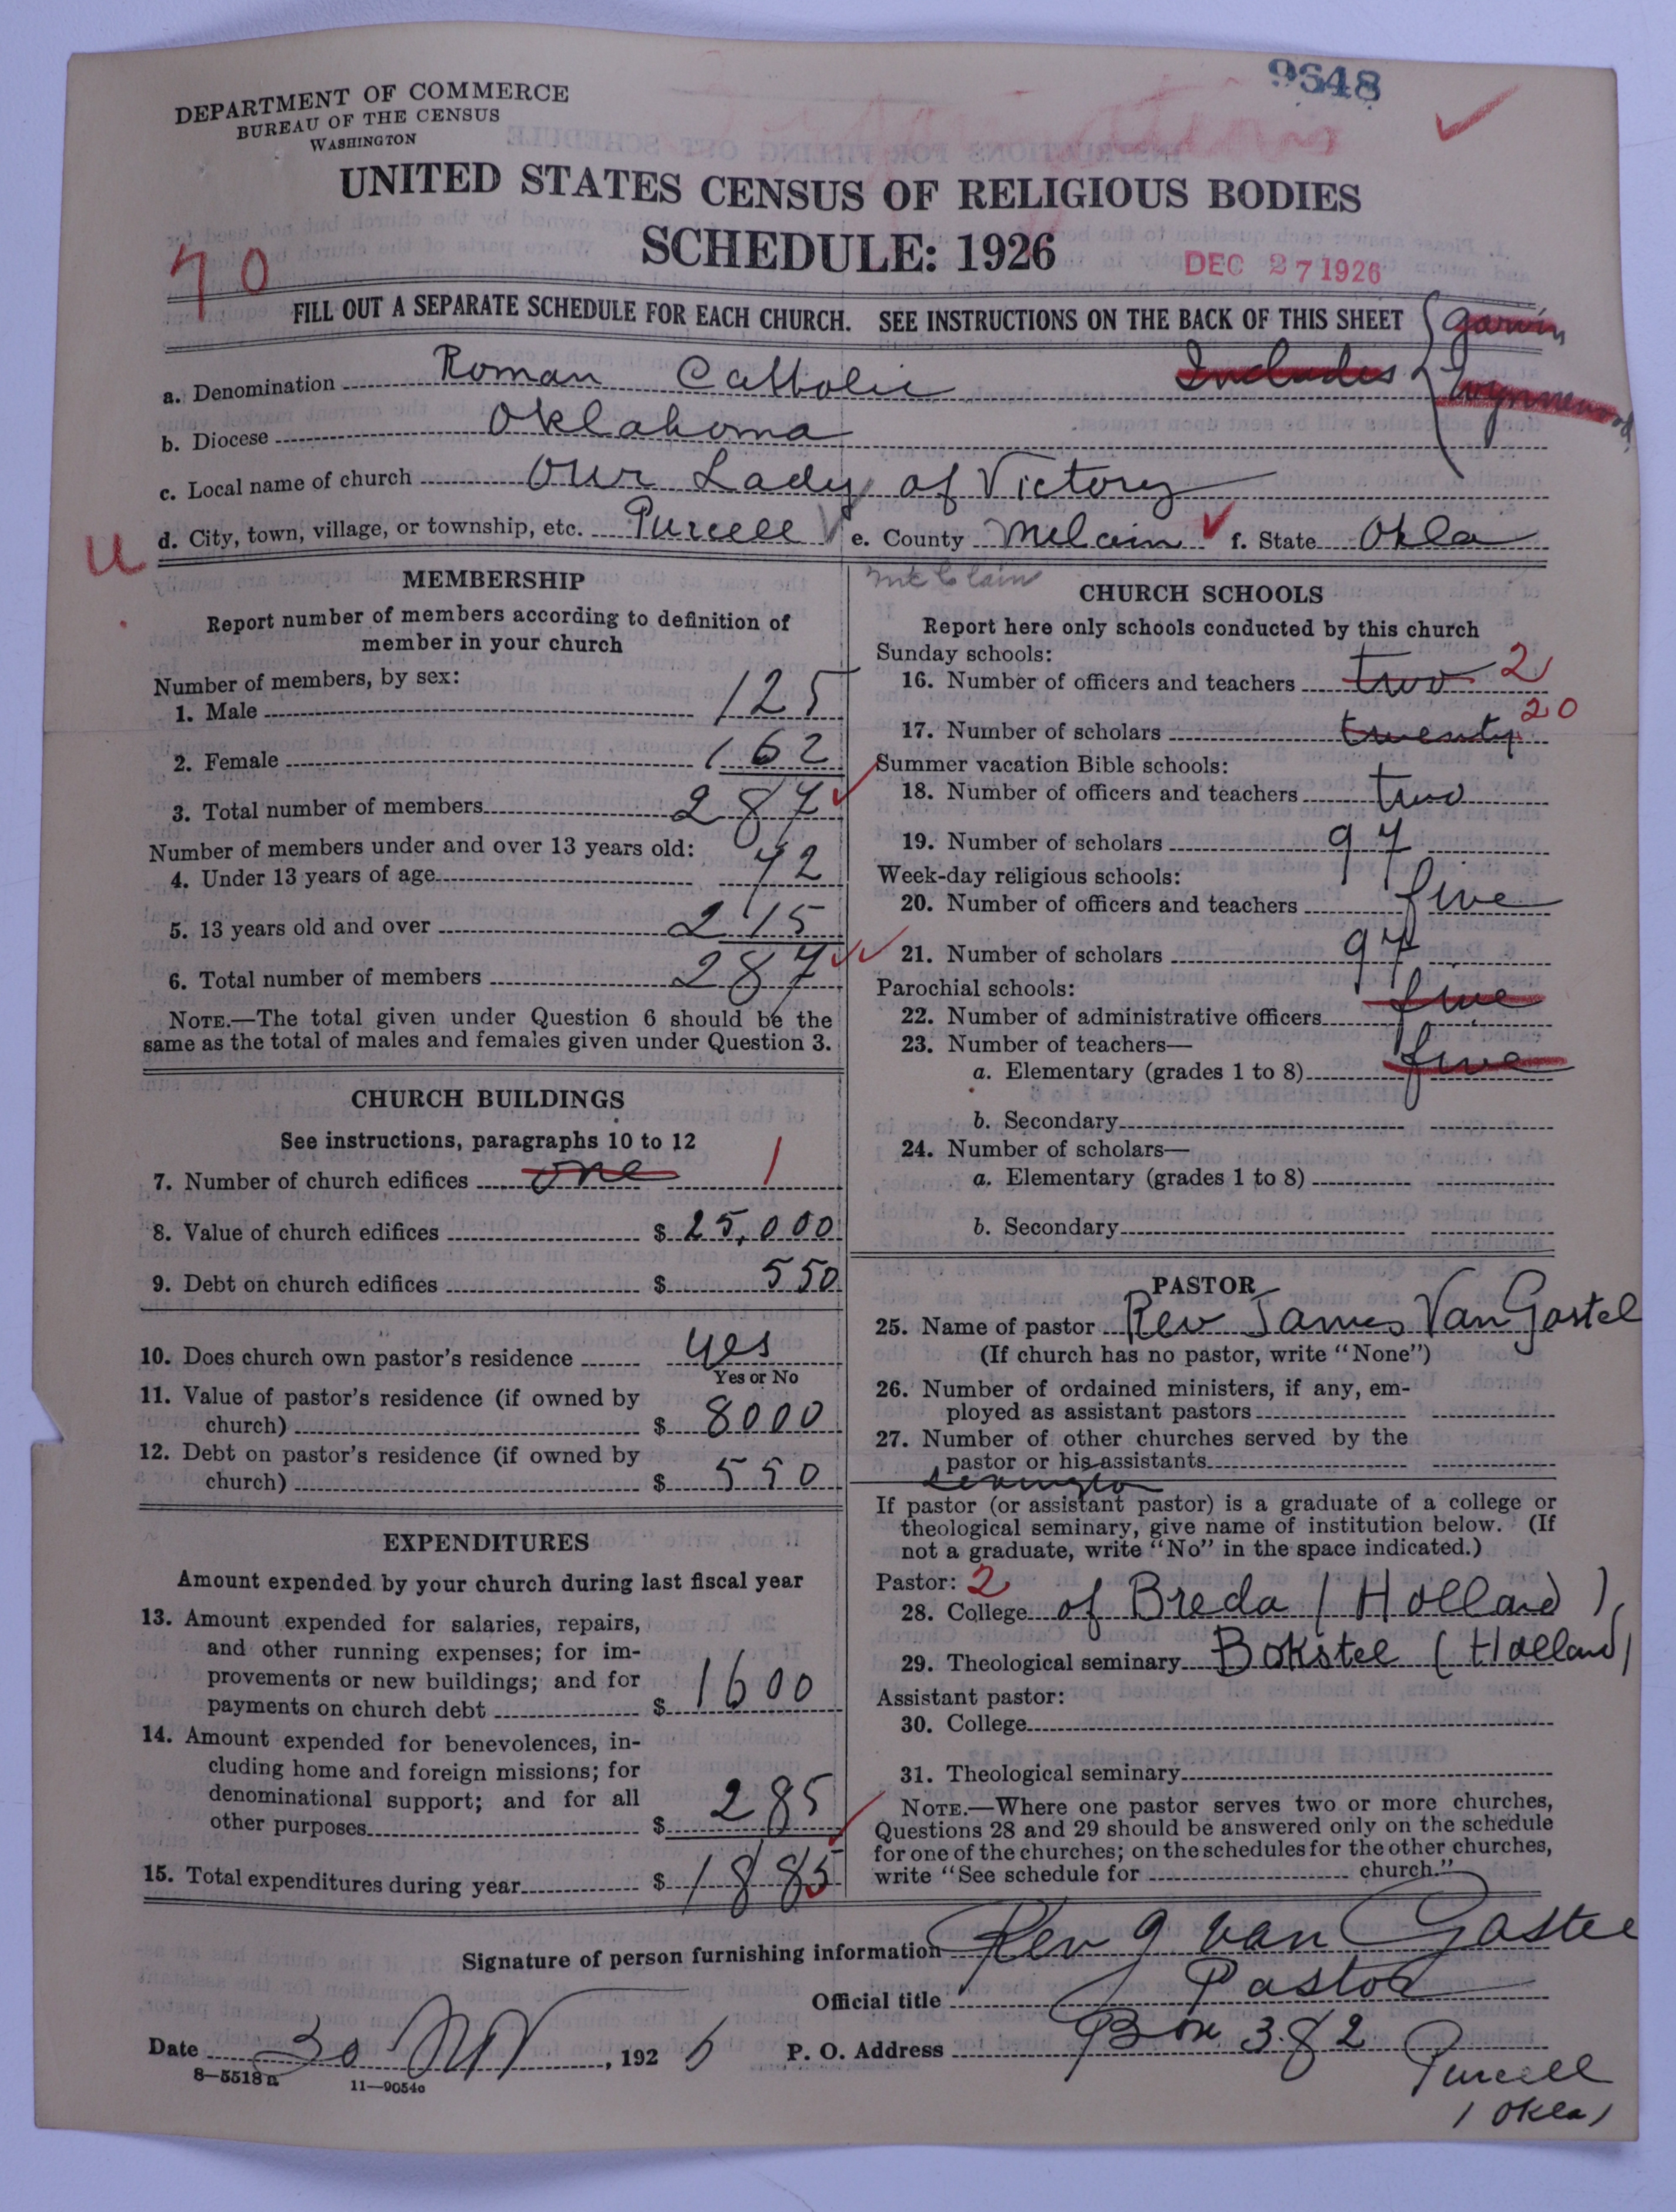 9648
DEPARTMENT OF COMMERCE
BUREAU OF THE CENSUS
WASHINGTON
UNITED STATES CENSUS OF RELIGIOUS BODIES
SCHEDULE: 1926
DEC 27 1926
70
FILL OUT A SEPARATE SCHEDULE FOR EACH CHURCH. SEE INSTRUCTIONS ON THE BACK OF THIS SHEET
Includes { Garvin
Wynnewood
a. Denomination Roman Catholic
b. Diocese Oklahoma
c. Local name of church Our Lady of Victory
u
d. City, town, village, or township, etc. Purcell e. County Mclain f. State Okla
McClain
MEMBERSHIP
Report number of members according to definition of
member in your church
Number of members, by sex:
1. Male 125
2. Female 162
3. Total number of members 287
Number of members under and over 13 years old:
4. Under 13 years of age 72
5. 13 years old and over 215
6. Total number of members 287
NOTE.—The total given under Question 6 should be the
same as the total of males and females given under Question 3.
CHURCH BUILDINGS
See instructions, paragraphs 10 to 12
7. Number of church edifices one 1
8. Value of church edifices $ 25,000
9. Debt on church edifices $ 550
10. Does church own pastor's residence yes
Yes or No
11. Value of pastor's residence (if owned by
church) $ 8000
12. Debt on pastor's residence (if owned by
church) $ 550
EXPENDITURES
Amount expended by your church during last fiscal year
13. Amount expended for salaries, repairs,
and other running expenses; for im-
provements or new buildings; and for
payments on church debt $ 1600
14. Amount expended for benevolences, in-
cluding home and foreign missions; for
denominational support; and for all
other purposes $ 285
15. Total expenditures during year $ 1885
CHURCH SCHOOLS
Report here only schools conducted by this church
Sunday schools:
16. Number of officers and teachers two 2
17. Number of scholars twenty 20
Summer vacation Bible schools:
18. Number of officers and teachers two
19. Number of scholars 97
Week-day religious schools:
20. Number of officers and teachers five
21. Number of scholars 97
Parochial schools:
22. Number of administrative officers five
23. Number of teachers—
a. Elementary (grades 1 to 8) five
b. Secondary
24. Number of scholars—
a. Elementary (grades 1 to 8)
b. Secondary
PASTOR
25. Name of pastor Rev James Van Gastel
(If church has no pastor, write "None")
26. Number of ordained ministers, if any, em-
ployed as assistant pastors
27. Number of other churches served by the
pastor or his assistants
Lexington
If pastor (or assistant pastor) is a graduate of a college or
theological seminary, give name of institution below. (If
not a graduate, write "No" in the space indicated.)
Pastor: 2
28. College of Breda (Holland)
29. Theological seminary Bokstel (Holland)
Assistant pastor:
30. College
31. Theological seminary
NOTE.—Where one pastor serves two or more churches,
Questions 28 and 29 should be answered only on the schedule
for one of the churches; on the schedules for the other churches,
write "See schedule for church."
Signature of person furnishing information Rev J Van Gastel
Official title Pastor
Date 30 Nov, 1926 P. O. Address Box 382
Purcell
(Okla)
8—5518a 11—9054c